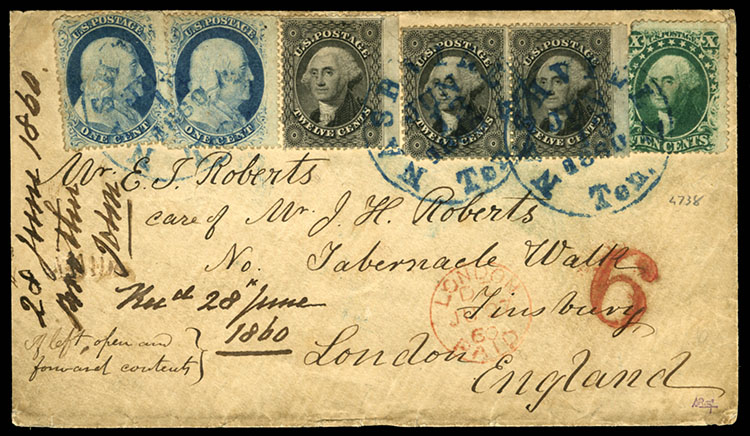 U.S. POSTAGE
ONE CENT
U.S. POSTAGE
ONE CENT
U.S. POSTAGE
TWELVE CENTS
U.S. POSTAGE
TWELVE CENTS
U.S. POSTAGE
TWELVE CENTS
X U.S. POSTAGE X
TEN CENTS
NASHVILLE
Ten.
NASHVILLE
1860
Ten.
4738
Mr. E. J. Roberts
care of Mr. J. H. Roberts
No. Tabernacle Walk
Finsbury
London
England
28 June 1860
John
28th June
1860
If left, open and
forward contents
LONDON
60
PAID
6